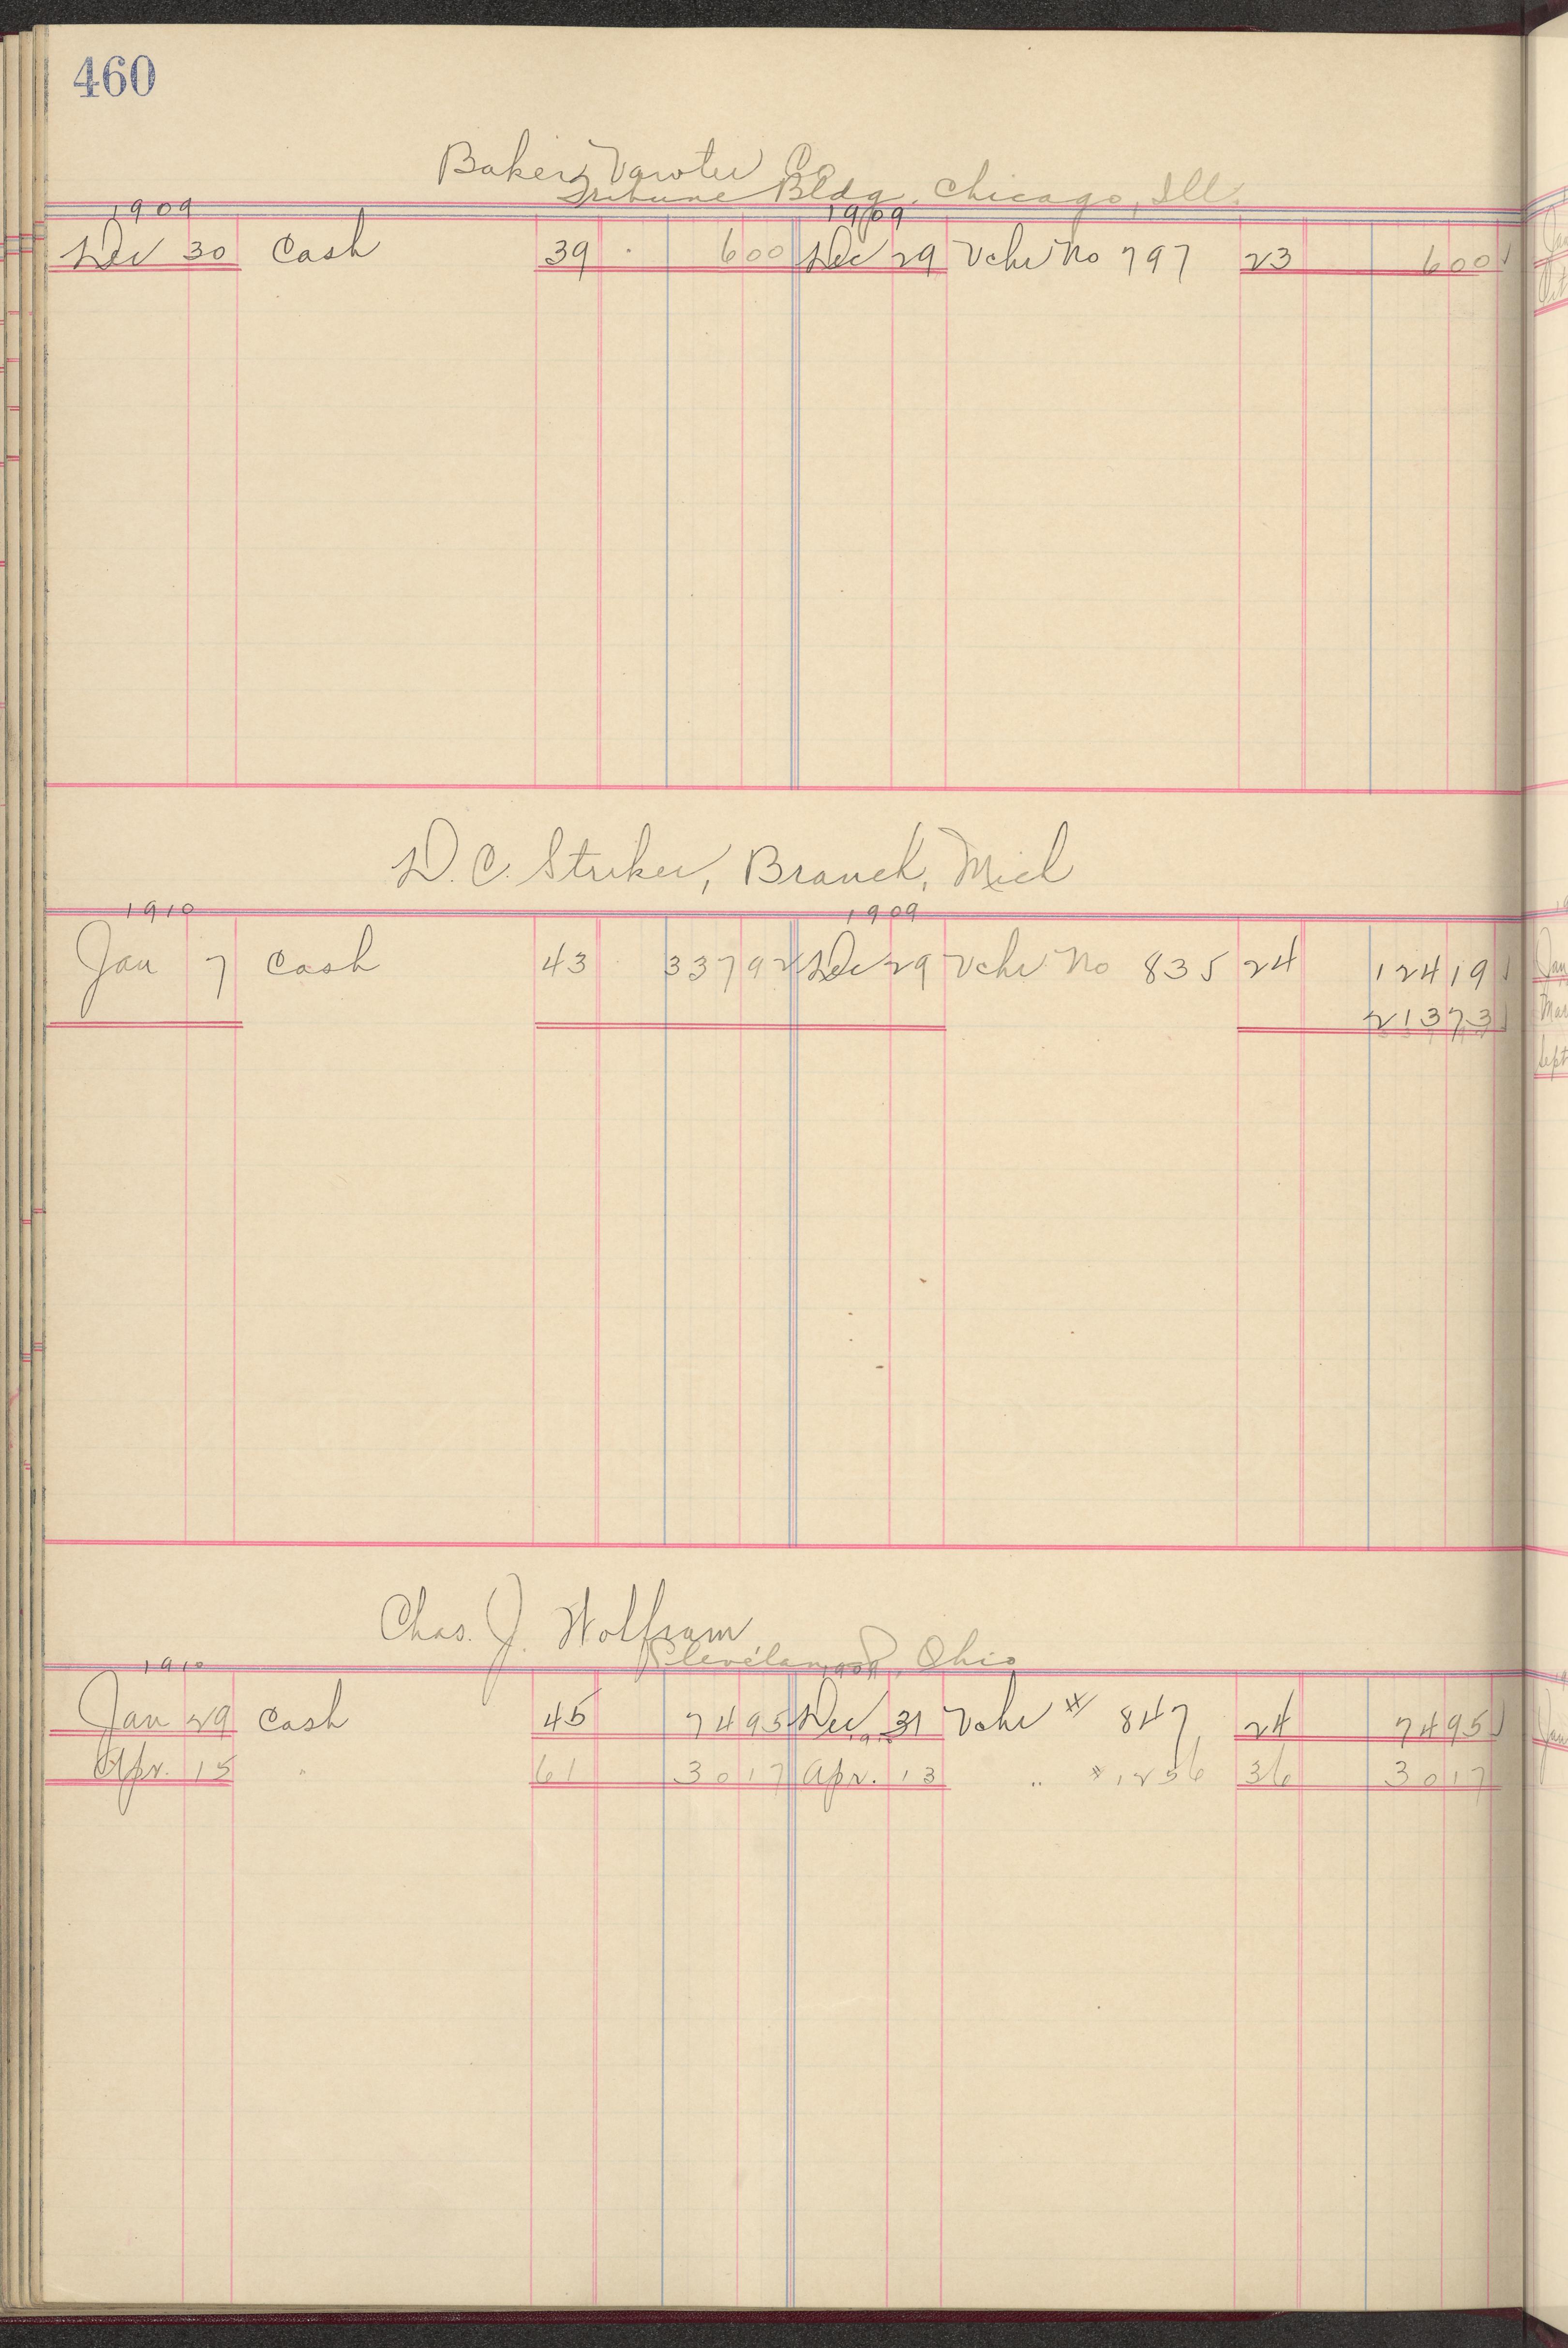 460
Baker Vawter Co
Tribune Bldg, Chicago, Ill.
1909 1909
Dec 30 Cash 39 6 00 Dec 29 Vchr No 797 23 6 00
D. C. Striker, Branch, Mich
1910 1909
Jan 7 Cash 43 337 92 Dec 29 Vchr No 835 24 124 19
213 73
Chas. J. Wolfram
Cleveland, Ohio
1910 1909
Jan 29 Cash 45 74 95 Dec 31 Vchr # 847 24 74 95
1910
Apr. 15 " 61 30 17 Apr. 13 " # 1256 36 30 17